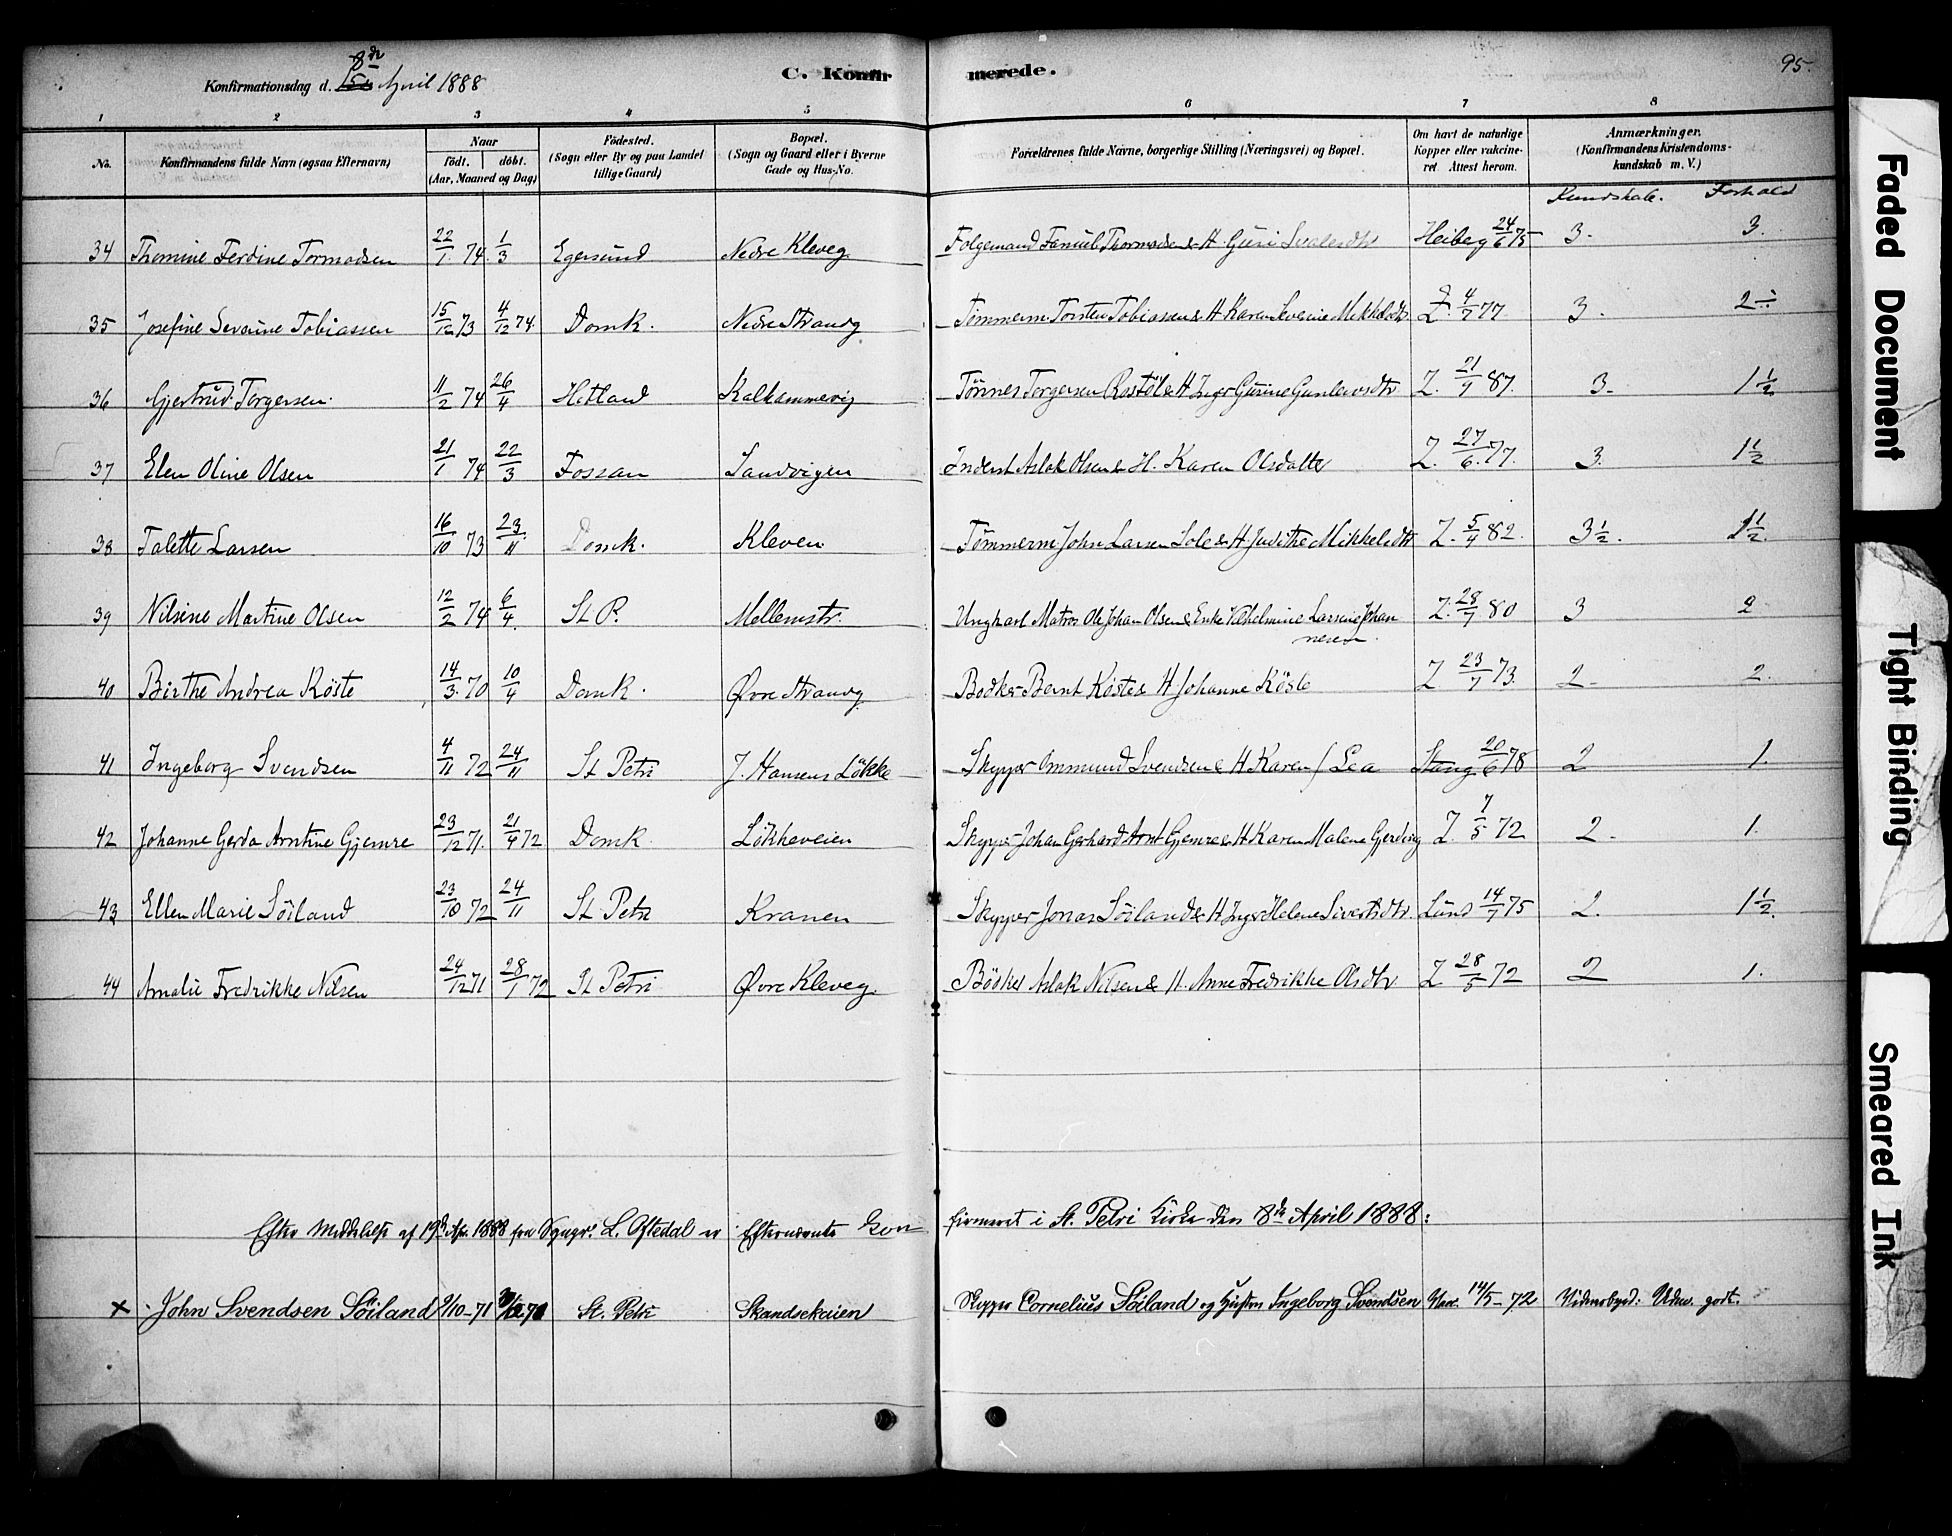 8de
Konfirmationsdag d. 15de April 1888
C. Konfirmerede.
95.
1 2 3 4 5 6 7 8
No. Konfirmandens fulde Navn (ogsaa Efternavn) Naar født. døbt. (Aar, Maaned og Dag) Fødested. (Sogn eller By og paa Landet tillige Gaard) Bopæl. (Sogn og Gaard eller i Byerne Gade og Hus-No. Forældrenes fulde Navne, borgerlige Stilling (Næringsvei) og Bopæl. Om havt de naturlige Kopper eller vakcineret. Attest herom. Anmærkninger. (Konfirmandens Kristendomskundskab m. V.)
Kundskab. Forhold
34 Thomine Ferdine Tormodsen 22/1 74 1/3 Egersund Nedre Kleveg Folgemand Thormodsen & H. Guri Heiberg 24/6 75 3. 3.
35 Josefine Severine Tobiassen 15/12 73 4/12 74 Domk. Nedre Strandg Tømmerm Torsten Tobiassen & H Karen Severine Z. 4/7 77 3. 2
36 Gjertrud Torgersen 11/2 74 26/4 Hetland Kalhammervig Tønnes Torgersen Rostøl & H Inger Gurine Gunlevsdtr Z. 21/7 87. 3. 1 1/2
37 Elen Oline Olsen 21/1 74 22/3 Fossan Sandvigen Inderst Aslak Olsen & H. Karen Olsdatter Z. 27/6. 77. 3. 1 1/2
38 Talette Larsen 16/10 73 23/11 Domk. Kleven Tømmerm John Larsen Sole & H. Judithe Mikkelsdtr Z. 5/4 82. 3 1/2. 1 1/2.
39 Nilsine Martine Olsen 12/2 74 6/4. St P. Mellemstr. Ungkarl Matros Ole Johan Olsen & Enke Vilhelmine Larsine Johannesen Z. 28/7 80 3 2
40 Birthe Andrea Köste 14/3. 70 10/4 Domk. Øvre Strandg Bødker Bernt Köste & H Johanne Köste Z 23/7 73. 2 2.
41 Ingeborg Svendsen 4/11 72 24/11 St Petri J. Hansens Løkke Skypper Ommund Svendsen & H Karen f Lea Stang 20/6 78 2 1.
42 Johanne Gerda Arntine Gjemre 23/12 71. 21/4 72 Domk Løkkeveien Skypper Johan Gerhard Arnt Gjemre & H Karen Malene Gjerding Z. 7/5 72 2. 1.
43 Ellen Marie Söiland 23/10 72 24/11 St Petri Kranen Skypper Jonas Söiland & H Inger Helene Sivertsdtr Lund 14/7 75 2. 1 1/2.
44 Amalie Fredrikke Nilsen 24/12 71 28/1 72 St Petri Øvre Kleveg. Bødker Aslak Nilsen & H. Anne Fredrikke Olsdtr Z 28/5 72 2 1.
Efter Meddelelse af 19de Apr. 1888 fra Sognpr. L. Oftedal er Efternævnte konfirmeret i St. Petri Kirke den 8de April 1888:
x John Svendsen Söiland 9/10-71 St. Petri Skandsekaien Skipper Cornelius Söiland og Hustru Ingeborg Svendsen 14/5-72 Udm. godt.
Faded Document
Tight Binding
Smeared Ink